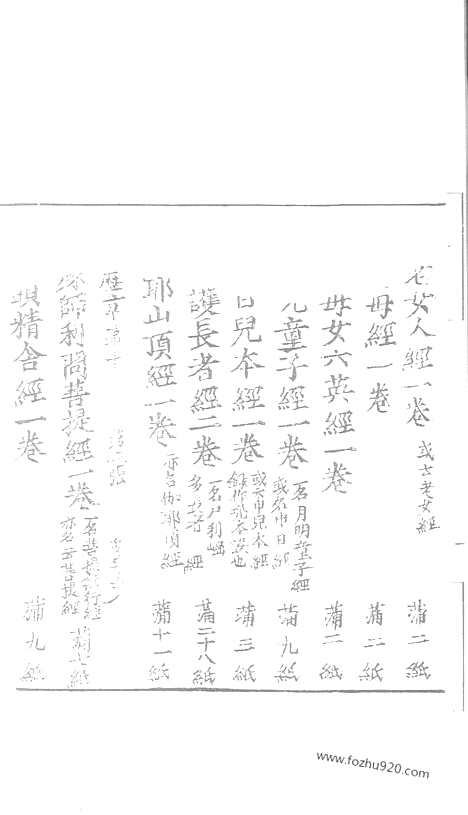 老女人經一卷 或云老女經 蒲二紙
母經一卷 蒲二紙
母女六英經一卷 蒲二紙
光童子經一卷 一名月明童子經 或名申日經 蒲九紙
日兒本經一卷 或云申兒本經 蒲三紙
護長者經二卷 一名尸利崛多長者經 蒲二十八紙
耶山頂經一卷 亦名伽耶頂經 蒲十一紙
歷章第十
殊師利問菩提經一卷 一名菩提無行經 亦名云菩提經 蒲七紙
祇精舍經一卷 蒲九紙
www.fozhu920.com